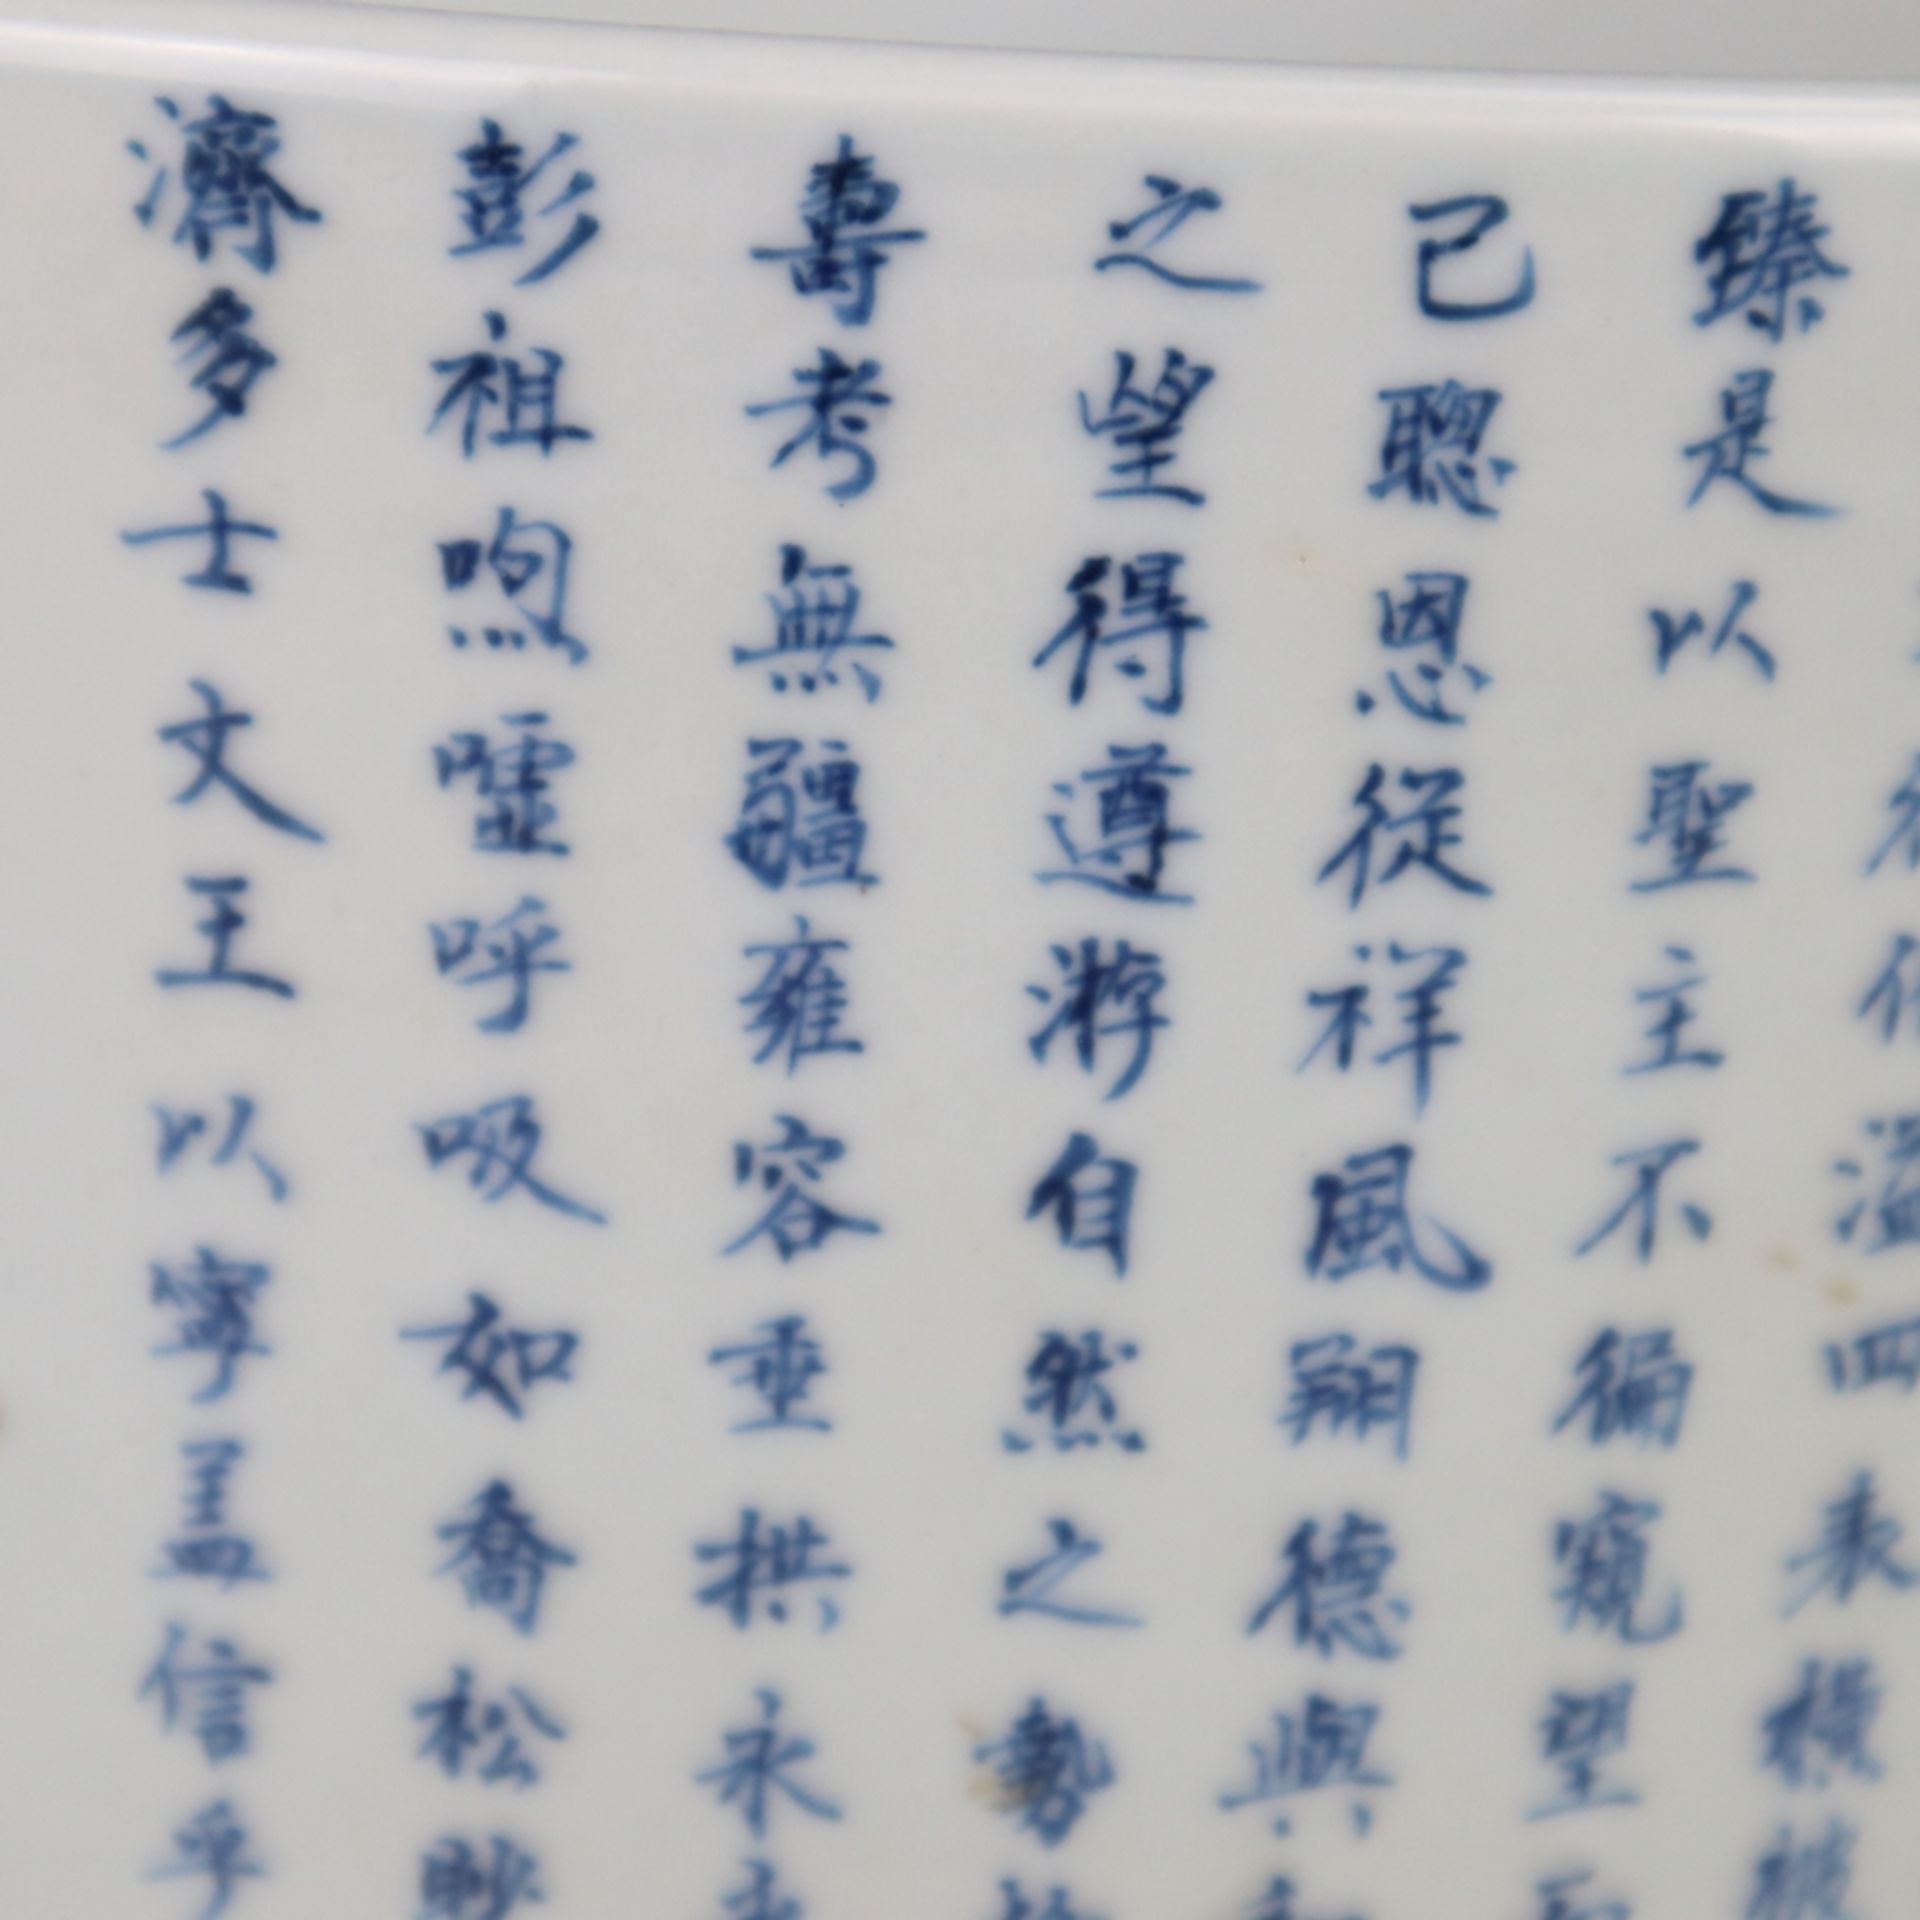 溢四表橫被
臻是以聖主不徧窺望而
已聰恩從祥風翔德與和
之望得遵游自然之勢恬
壽考無疆雍容垂拱永永
彭祖喣噓呼吸如喬松眇
濟多士文王以寧蓋信乎